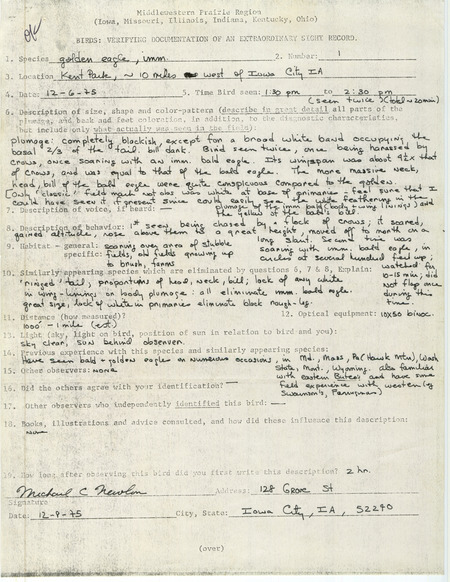 Middlewestern Prairie Region
(Iowa, Missouri, Illinois, Indiana, Kentucky, Ohio)
ok
BIRDS: VERIFYING DOCUMENTATION OF AN EXTRAORDINARY SIGHT RECORD.
1. Species golden eagle, imm. 2. Number: 1
3. Location Kent Park, ~ 10 miles west of Iowa City IA
4. Date: 12-6-75 5. Time Bird seen: 1:30 pm to 2:30 pm
(seen twice) (total ~ 20 min)
6. Description of size, shape and color-pattern (describe in great detail all parts of the
plumage, and beak and feet coloration, in addition, to the diagnostic characteristics,
but include only what actually was seen in the field)
plumage: Completely blackish, except for a broad white band occupying the
basal 2/3 of the tail all dark. Bird seen twice, once being harassed by
crows, once soaring with an imm. bald eagle. Its wingspan was about 4x that
of crows, and was equal to that of the bald eagle. The more massive neck,
head, bill of the bald eagle were quite conspicuous compared to the golden.
[Only "classic" field mark not obs was white at base of primaries - feel sure that I
could have seen it if present since could easily see the white feathering in the
plumage of the imm. bald (body & wing linings) and
7. Description of voice, if heard: the yellow of the bald's bill.
8. Description of behavior: 1st seen being chased by a flock of crows, it soared,
gained altitude, rose above them to a great height, moved off to north on a
long slant. Second time was
9. Habitat - general: soaring over area of stubble soaring with imm. bald eagle, in
specific: fields, old fields growing up circles at several hundred feet up;
to brush, farms watched for
10. Similarly appearing species which are eliminated by questions 6, 7 & 8, Explain: 10-15 min; did
"ringed" tail, proportions of head, neck, bill; lack of any white not flap once
in wing linings or body plumage: all eliminate imm. bald eagle. during this
great size, lack of white in primaries eliminate black rough-leg. time
11. Distance (how measured)? 12. Optical equipment: 10x50 binoc.
1000' - 1 mile (est)
13. Light (sky, light on bird, position of sun in relation to bird and you):
sky clear, sun behind observer.
14. Previous experience with this species and similarly appearing species:
Have seen bald & golden eagles on numerous occasions, in Md, Mass, Pa (Hawk Mtn), Wash
15. Other observers: none State, Mont. Wyoming. also familiar
with eastern Buteos and have some
16. Did the others agree with your identification? — field experience with western (eg
Swainson's, Ferruginous)
17. Other observers who independently identified this bird: —
18. Books, illustrations and advice consulted, and how did these influence this description:
none
19. How long after observing this bird did you first write this description? 2 hr.
Michael C Newlon Address: 128 Grove St
Signature
Date: 12-9-75 City, State: Iowa City, IA, 52240
(over)